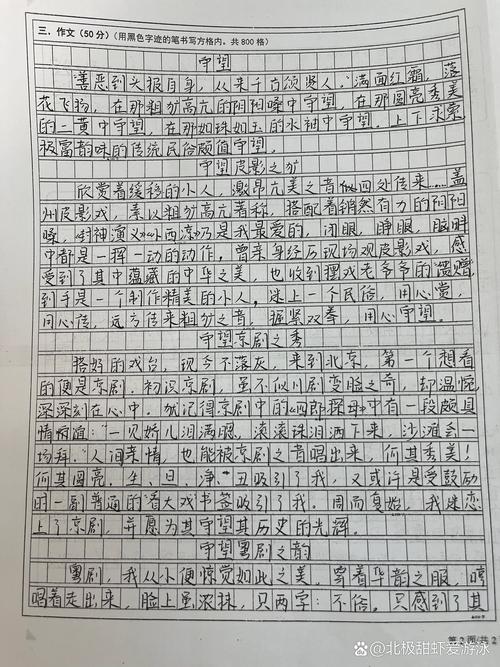 三、作文(50分)(用黑色字迹的笔书写方格内。共800格)
守望
"善恶到头报自身，从来千古颂贤人。"满面红霜，落
花飞扬，在那粗犷高亢的阴阳嗓中守望，在那圆亮秀美
的二黄中守望，在那如珠如玉的水袖中守望。上下求索
极富韵味的传统民俗颇值守望。
守望皮影之犷
欣赏着缓移的小人，激昂亢美之音似四处传来……盖
州皮影戏，素以粗犷高亢著称，搭配着铿然有力的阴阳
嗓，《封神演义》《外西凉》乃是我最爱的，闭眼，睁眼，脑畔
中都是一挥一动的动作。曾亲身经历现场观皮影戏，感
受到了其中蕴藏的中华之美，也收到摆戏老爷爷的"馈赠"
到手是一个制作精美的小人，迷上一个民俗，用心赏，
用心传，远方传来粗犷之音，握紧双拳，用心守望。
守望京剧之秀
搭好的戏台，现今不落灰，来到北京，第一个想看
的便是京剧。初识京剧，虽不似川剧变脸之奇，却温悦
深深刻在心中。犹记得京剧中的《四郎探母》中有一段颇具
情病谊："一见娇儿泪满腮，滚滚珠泪洒下来，沙滩会一
场拜。"人间亲情，也能被京剧之音唱出来，何其秀美！
何其圆亮。生、旦、净、丑吸引了我，又或许是受鼓励
时一副普通的"看大戏"书签吸引了我。周而复始，我迷恋
上了京剧，并愿为其守望其历史的光辉。
守望粤剧之韵
粤剧，我从小便惊觉如此之美，穿着华韵之服，嘻
唱着走出来，脸上虽浓抹，只两字：不俗。只感到了其
第2页/共2
@北极甜虾爱游泳